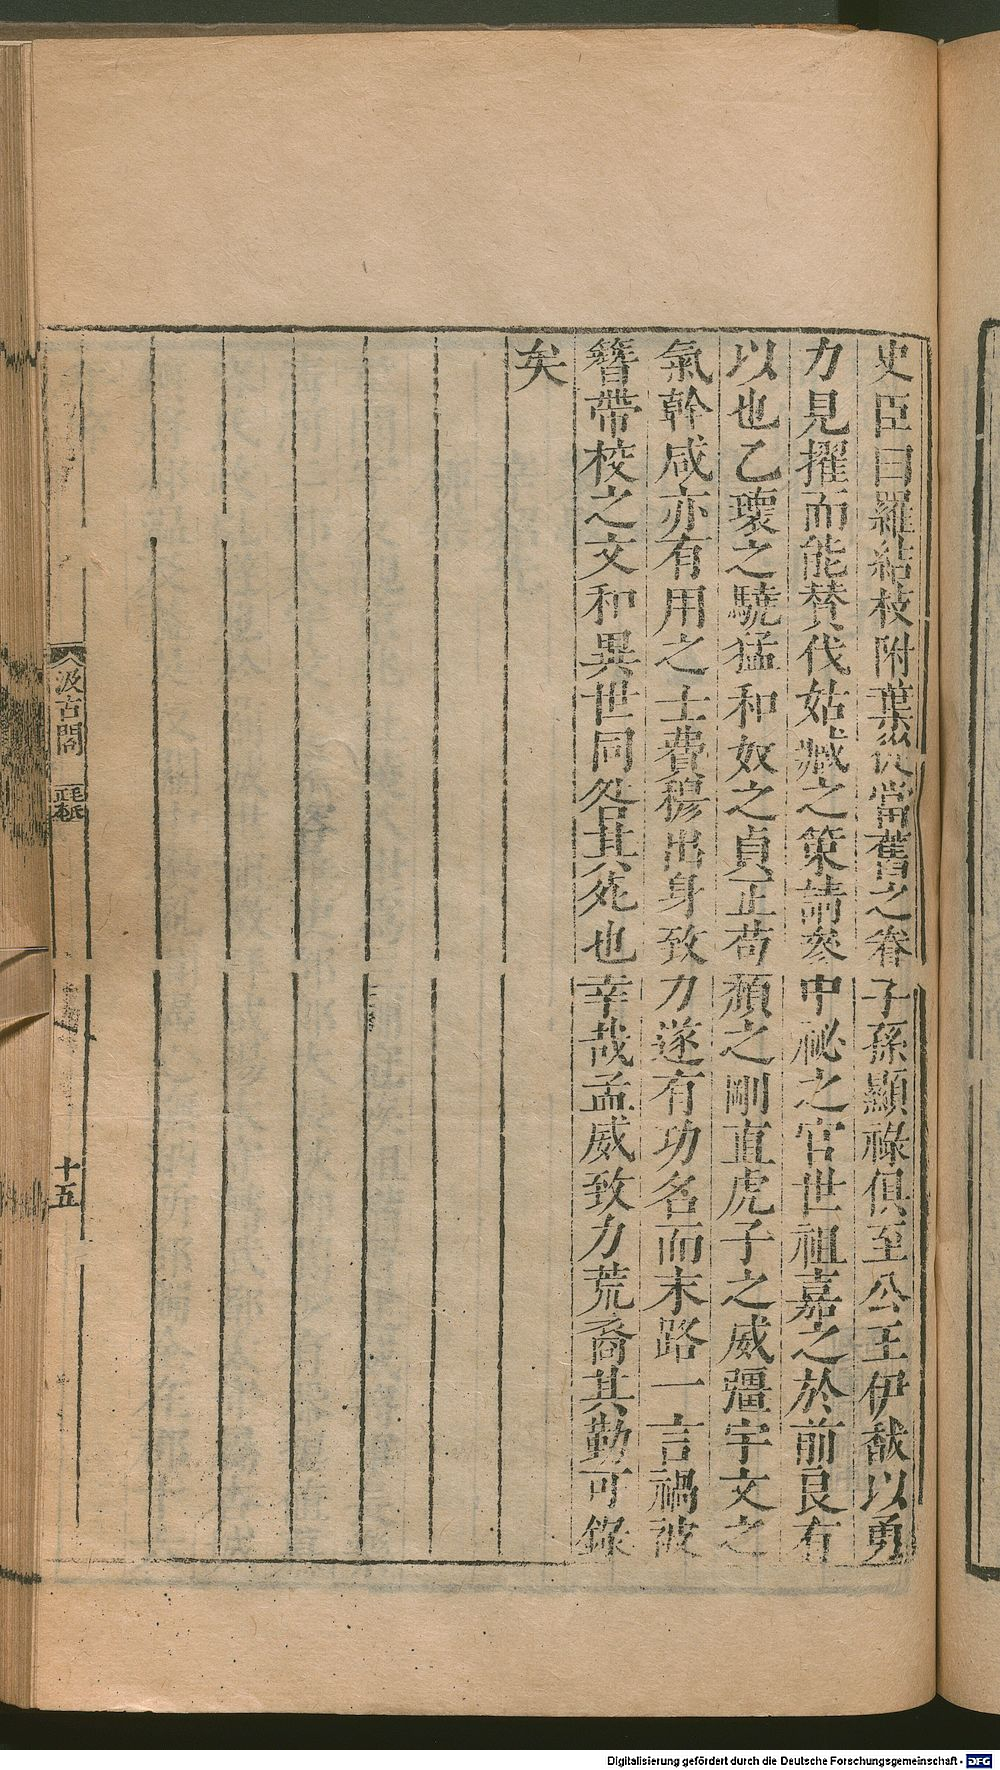 史臣曰羅結枝附葉從當舊之眷子孫顯祿俱至公王伊馛以勇
力見擢而能贊伐姑臧之策請參中祕之官世祖嘉之於前良有
以也乙瓌之驍猛和奴之貞正苟頹之剛直虎子之威彊宇文之
氣幹咸亦有用之士費穆出身致力遂有功名而末路一言禍被
簪帶校之文和異世同咎其死也幸哉孟威致力荒裔其勤可錄
矣
汲古閣
毛氏
正本
十五
Digitalisierung gefördert durch die Deutsche Forschungsgemeinschaft - DFG